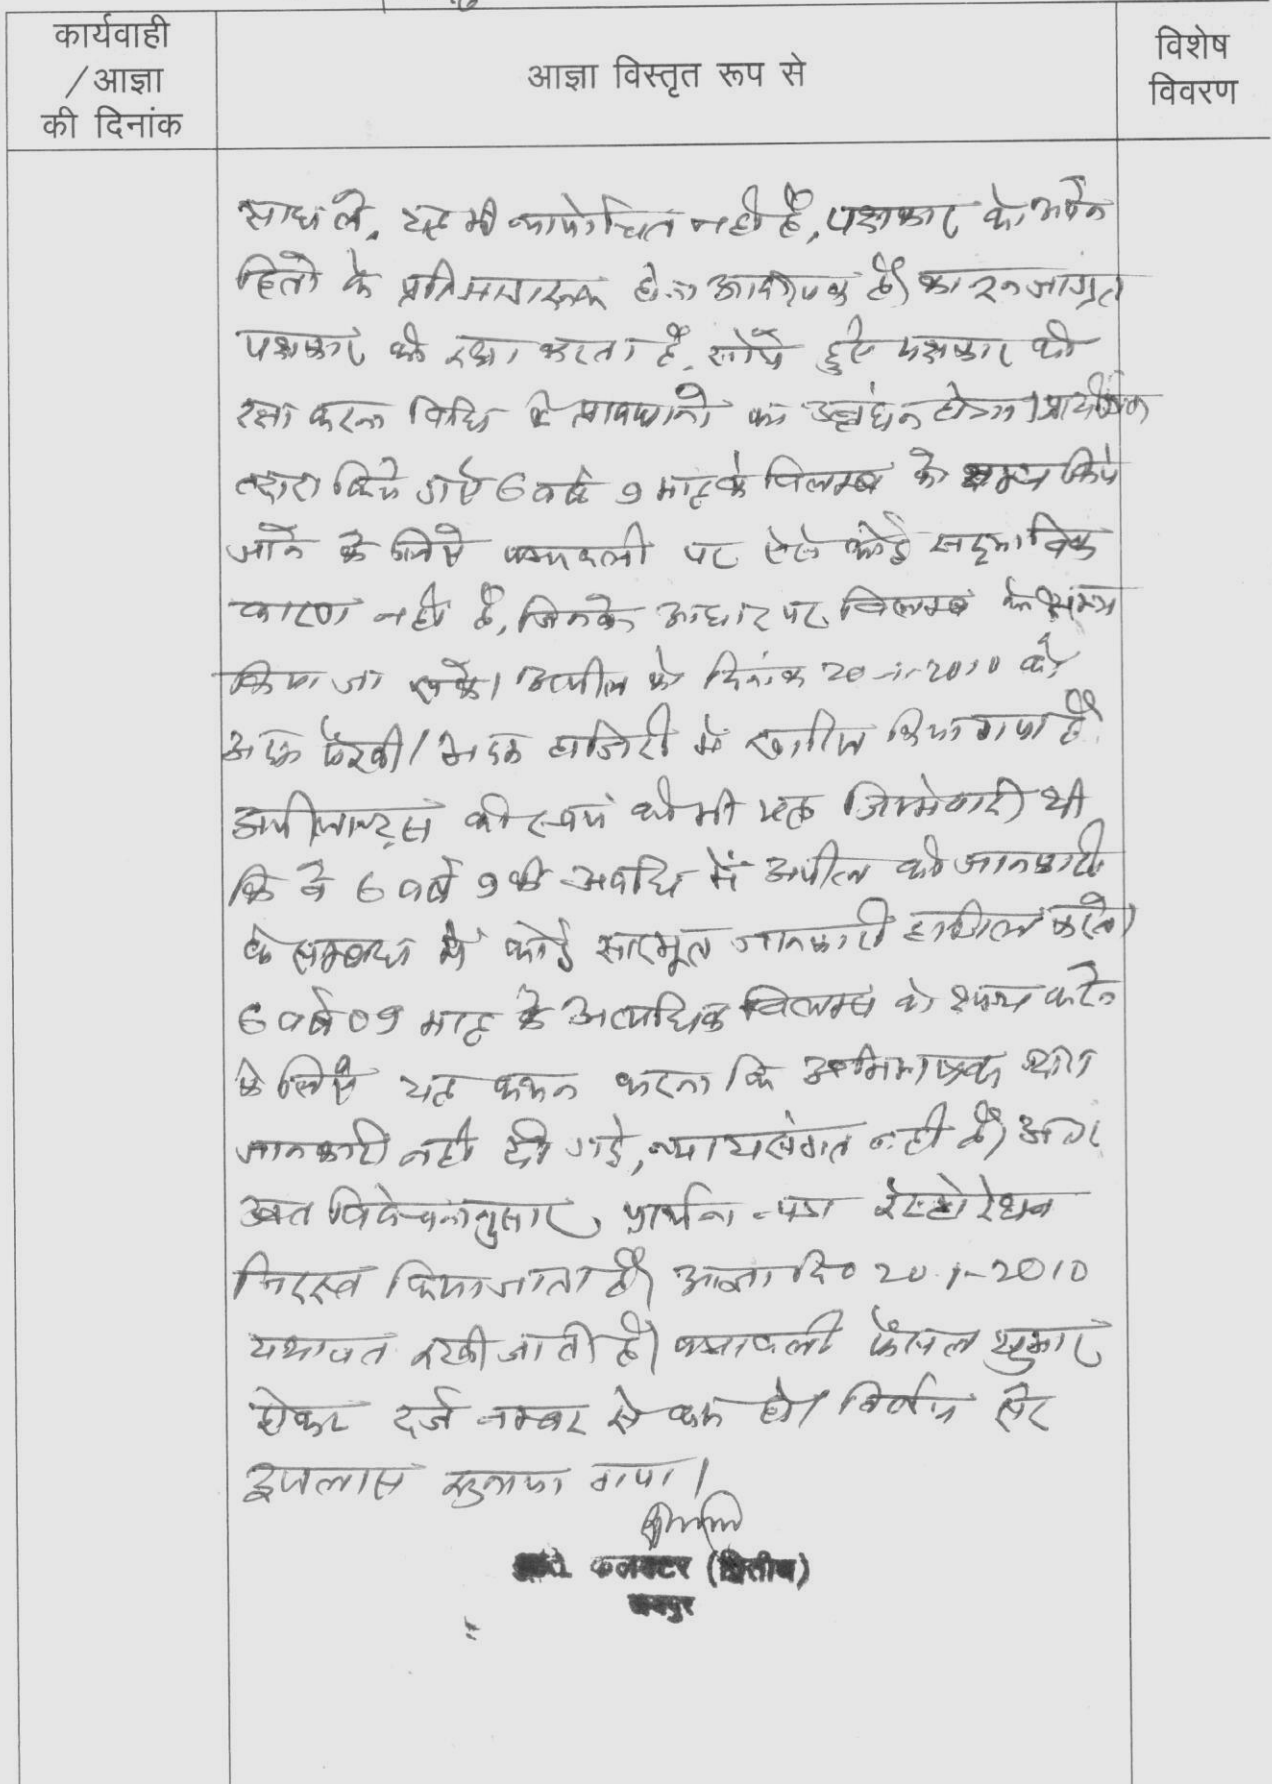 कार्यवाही
/आज्ञा
की दिनांक
आज्ञा विस्तृत रूप से
विशेष
विवरण
साध ले, यह भी न्यायोचित नही है, पक्षकार को अपने
हितो के प्रति जागरूक होना आवश्यक है। कानून जाग्रत
पक्षकार की रक्षा करता है, सोये हुए पक्षकार की
रक्षा करना विधि के प्रावधानो का उल्लंघन होगा। प्रार्थीगण
द्वारा किये गये 6 वर्ष 9 माह के विलम्ब को क्षम्य किये
जाने के लिये पत्रावली पर ऐसे कोई सद्भाविक
कारण नही है, जिनके आधार पर विलम्ब को क्षम्य
किया जा सके। अपील को दिनांक 20-1-2010 को
अदम पैरवी/अदम हाजिरी मे खारिज किया गया है
अपीलान्ट्स की स्वयं की भी यह जिम्मेवारी थी
कि वे 6 वर्ष 9 की अवधि में अपील की जानकारी
के सम्बन्ध मे कोई सारभूत जानकारी हासिल करते।
6 वर्ष 09 माह के अत्यधिक विलम्ब को क्षम्य करने
के लिये यह कथन करना कि अभिभाषक द्वारा
जानकारी नही दी गई, न्यायसंगत नही है। अतः
उक्त विवेचनानुसार प्रार्थना-पत्र रेस्टोरेशन
निरस्त किया जाता है। आज्ञा दि० 20-1-2010
यथावत रखी जाती है। पत्रावली फैसल शुमार
होकर दर्ज नम्बर से कम हो। निर्णय सरे
इजलास सुनाया गया।
कलक्टर (द्वितीय)
जयपुर